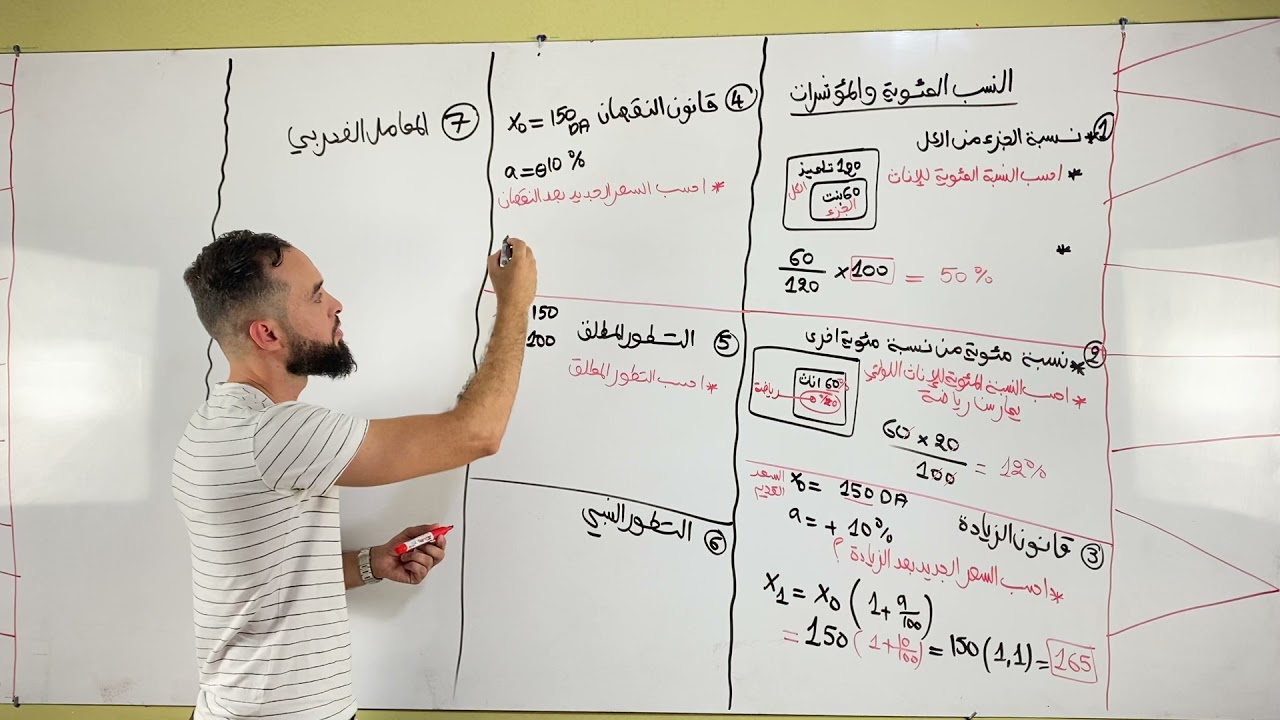 النسب المئوية والمؤشرات
① * نسبة الجزء من الكل
* احسب النسبة المئوية للإناث
120 تلميذ
الكل
60 بنت
الجزء
*
60/120 × 100 = 50 %
② * نسبة مئوية من نسبة مئوية اخرى
* احسب النسبة المئوية للإناث اللواتي
يمارسن رياضة
60% اناث
20% رياضة
60 × 20 / 100 = 12 %
③ قانون الزيادة
السعر القديم x0 = 150 DA
a = + 10 %
* احسب السعر الجديد بعد الزيادة ؟
X1 = X0 ( 1 + a/100 )
= 150 ( 1 + 10/100 ) = 150 ( 1,1 ) = 165
④ قانون النقصان
X0 = 150 DA
a = ⊖10 %
* احسب السعر الجديد بعد النقصان
⑤ التطور المطلق
150
100
* احسب التطور المطلق
⑥ التطور النسبي
⑦ المعامل الضربي